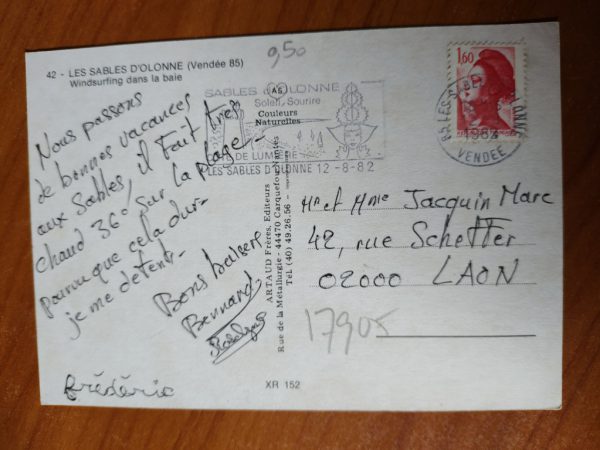 9,50
42 - LES SABLES D'OLONNE (Vendée 85)
Windsurfing dans la baie
SABLES D'OLONNE
Soleil, Sourire
AS
Couleurs
Naturelles
DE LUMIERE
LES SABLES D'OLONNE 12-8-82
1,60
VENDEE
Nous passons
de bonnes vacances
aux Sables, il fait très
chaud 36° sur la plage
pourvu que cela dur-
je me détent-
Bons baisers
Bernard
Frédéric
ARTAUD Frères, Editeurs
Rue de la Métallurgie - 44470 Carquefou-Nantes
Tél (40) 49.26.56
Mr et Mme Jacquin Marc
42, rue Scheffer
02000 LAON
17905
XR 152